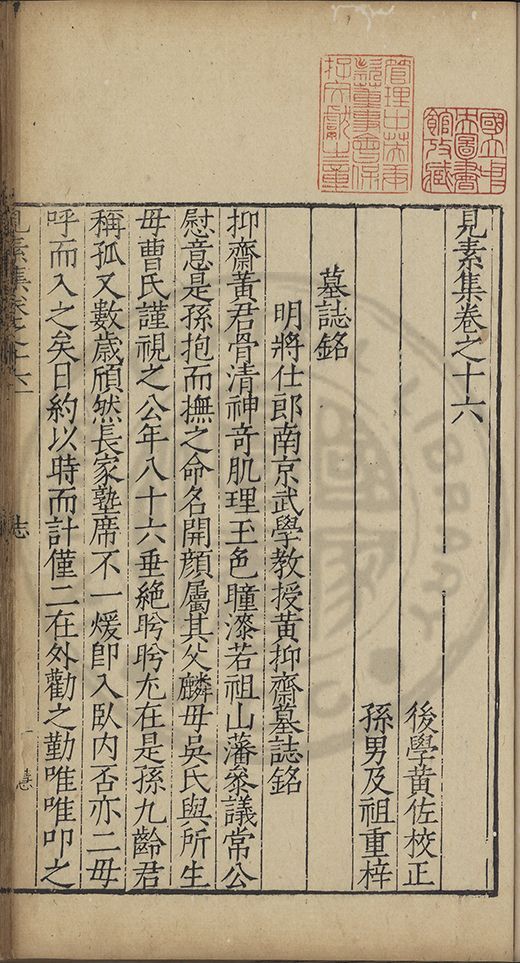 見素集卷之十六
後學黃佐校正
孫男及祖重梓
墓誌銘
明將仕郎南京武學教授黃抑齋墓誌銘
抑齋黃君骨清神奇肌理玉色瞳漆若祖山藩叅議常公
慰意是孫抱而撫之命名開顔屬其父麟毋吳氏與所生
毋曹氏謹視之公年八十六垂絶盻盻尢在是孫九齡君
稱孤又數歲頎然長家塾席不一煖卽入臥内否亦二毋
呼而入之矣日約以時而計僅二在外勸之勤唯唯叩之
見素集卷之十六
志
一
國立中央圖書館收藏
管理中英庚款董事會保存文獻之章